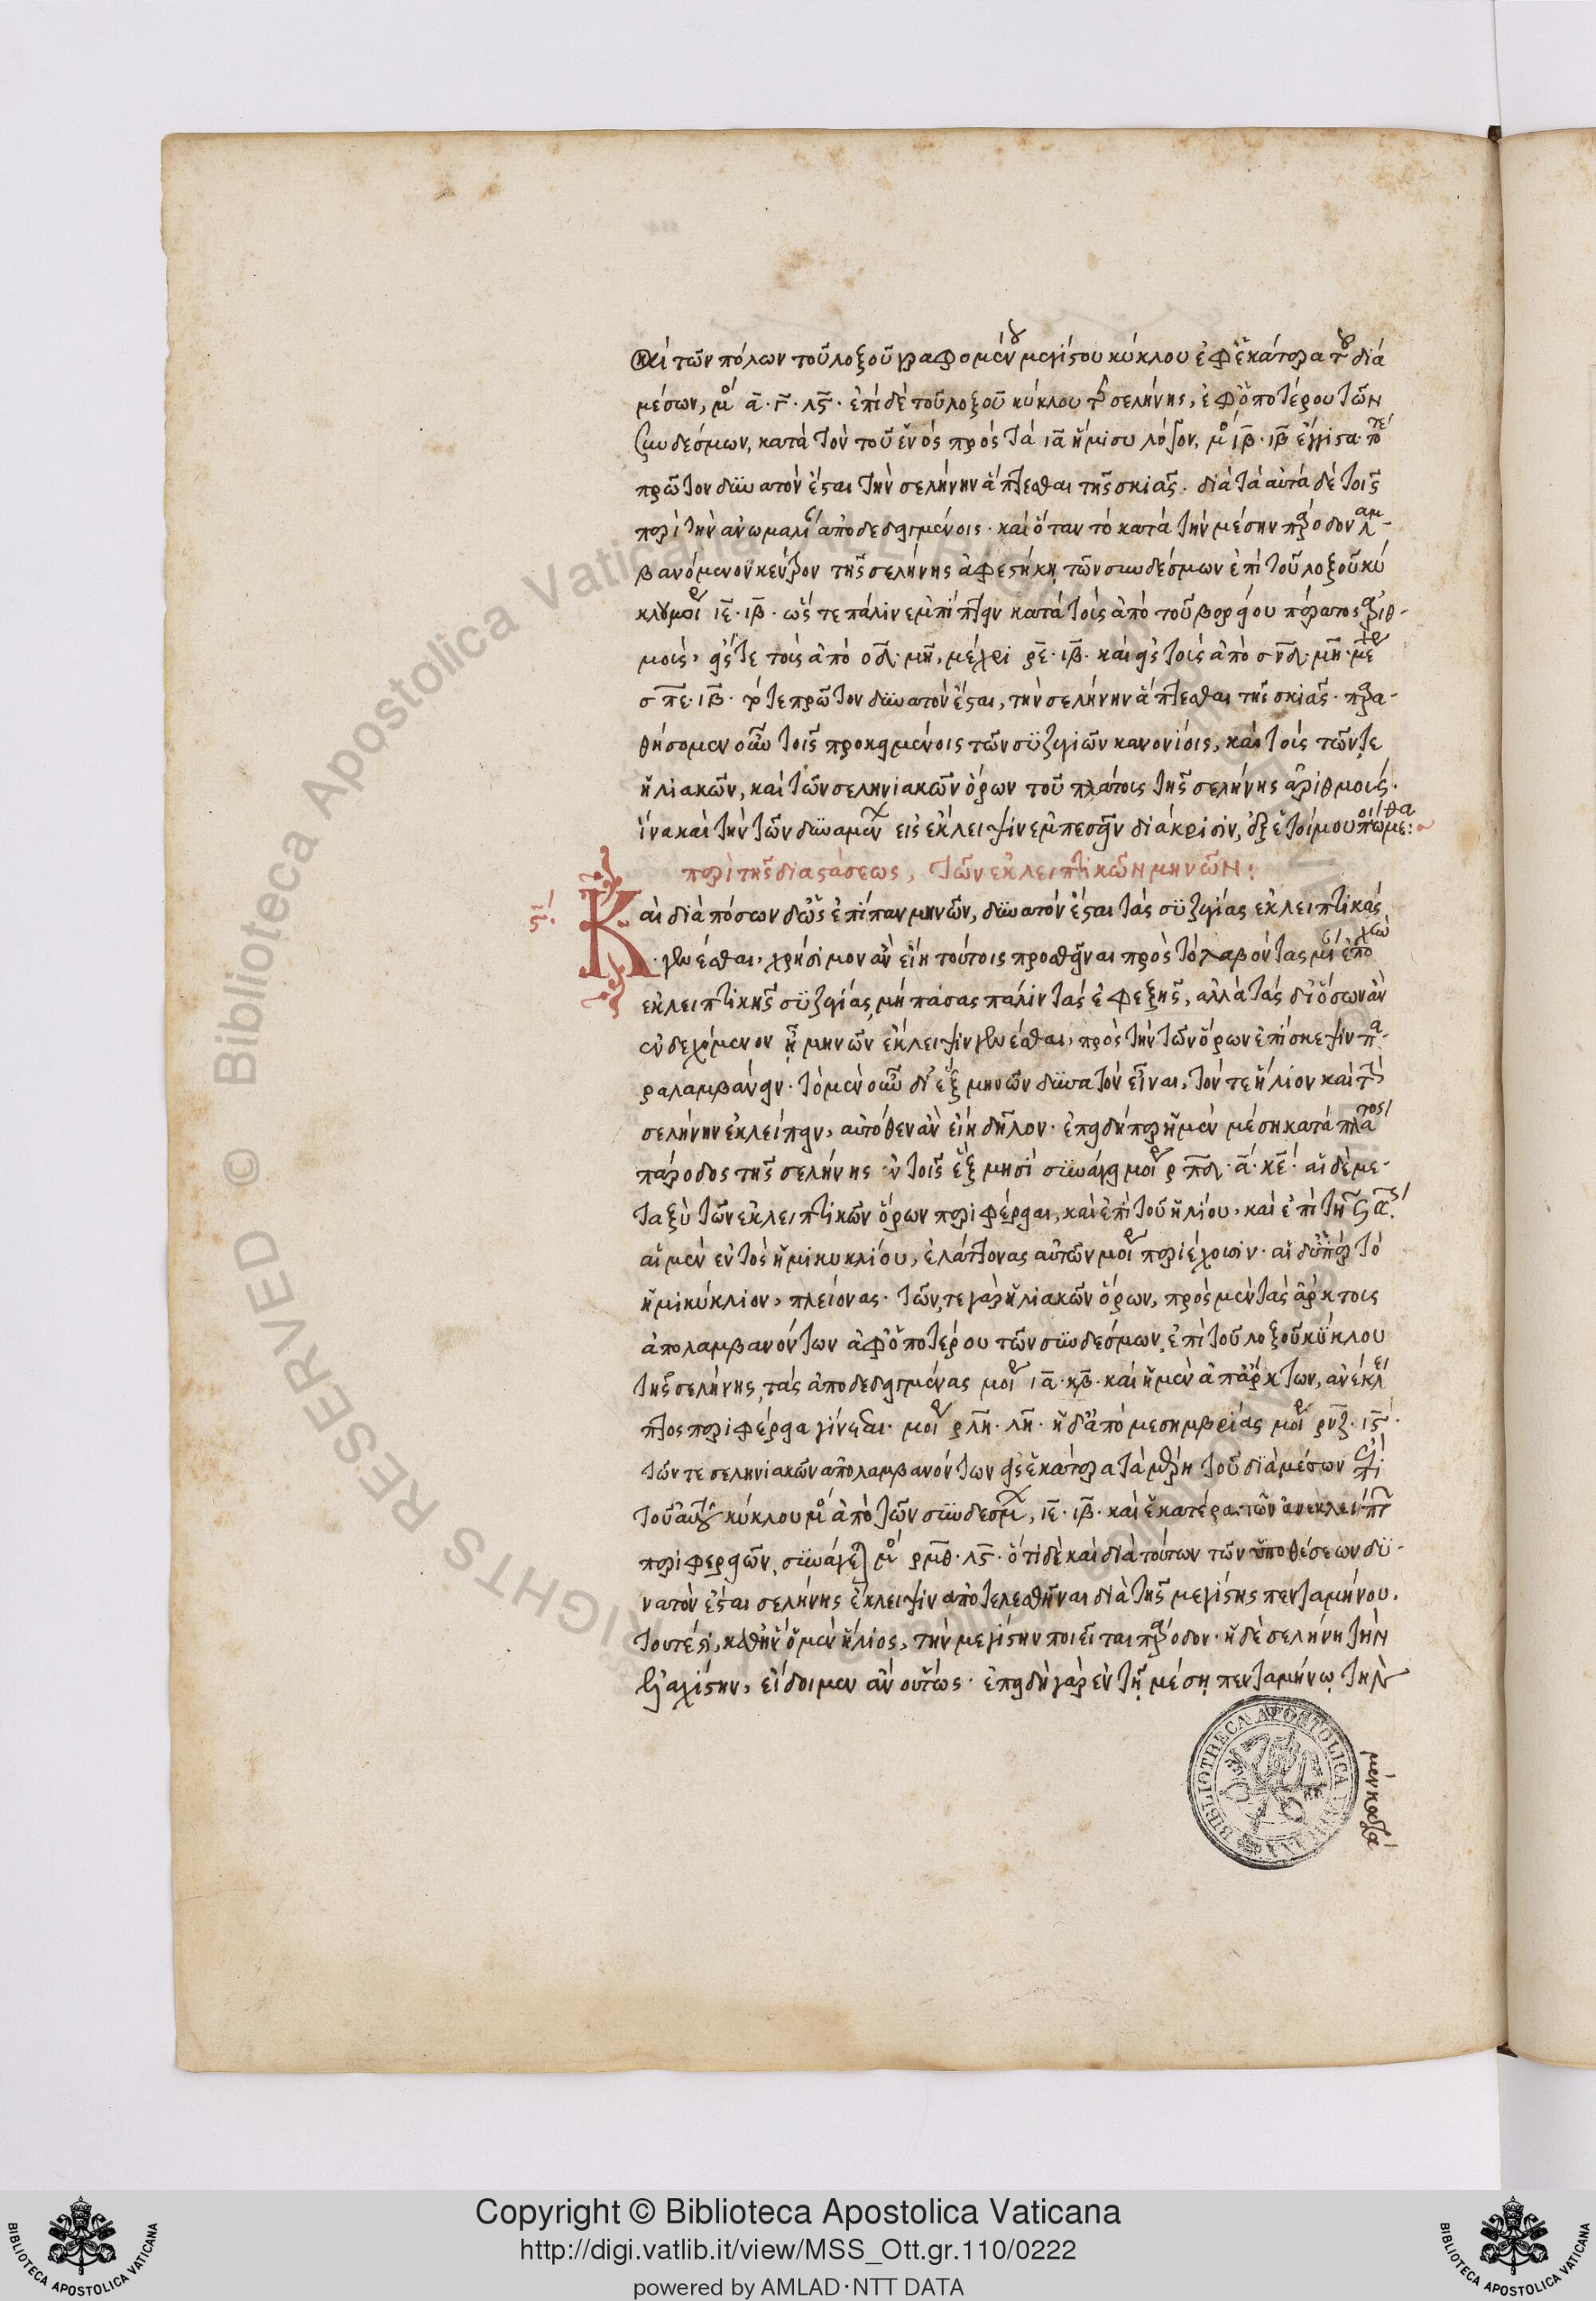 καὶ τῶν πόλων τοῦ λοξοῦ γραφομένου μεγίστου κύκλου ἐφ' ἑκάτερα τοῦ διὰ
μέσων, μο ᾱ · γ̄ · λϛ̄ · ἐπὶ δὲ τοῦ λοξοῦ κύκλου τῆς σελήνης, ἐφ' ὁποτέρου τῶν
συνδέσμων, κατὰ τὸν τοῦ ἑνὸς πρὸς τὰ ιᾱ ἥμισυ λόγον, μο ιβ̄ · ιβ̄ ἔγγιστα · τότε
πρῶτον δυνατὸν ἔσται τὴν σελήνην ἅπτεσθαι τῆς σκιᾶς · διὰ τὰ αὐτὰ δὲ τοῖς
περὶ τὴν ἀνωμαλίαν ἀποδεδειγμένοις · καὶ ὅταν τὸ κατὰ τὴν μέσην πάροδον λαμ-
βανόμενον κέντρον τῆς σελήνης ἀφεστήκῃ τῶν συνδέσμων ἐπὶ τοῦ λοξοῦ κύ
κλου μοι ιε̄ · ιβ̄ · ὥστε πάλιν ἐμπίπτειν κατὰ τοῖς ἀπὸ τοῦ βορείου πέρατος ἀριθ-
μοῖς, εἴς τε τοῖς ἀπὸ οδ̄ · μη̄, μέχρι ρε̄ · ιβ̄ · καὶ εἰς τοῖς ἀπὸ σνδ̄ · μη̄ · μέχρι
σπε̄ · ιβ̄ · τότε πρῶτον δυνατὸν ἔσται, τὴν σελήνην ἅπτεσθαι τῆς σκιᾶς · παρα-
θήσομεν οὖν τοῖς προκειμένοις τῶν συζυγιῶν κανονίοις, καὶ τοῖς τῶν τε
ἡλιακῶν, καὶ τῶν σεληνιακῶν ὅρων τοῦ πλάτοις τῆς σελήνης ἀριθμοῖς ·
ἵνα καὶ τὴν τῶν δυναμένων εἰς ἔκλειψιν ἐμπεσεῖν διάκρισιν, ἐξ ἑτοίμου ποιώμεθα :
περὶ τῆς διαστάσεως, τῶν ἐκλειπτικῶν μηνῶν :
ϛ̄ · Καὶ διὰ πόσων δ' ὡς ἐπίπαν μηνῶν, δυνατὸν ἔσται τὰς συζυγίας ἐκλειπτικὰς
γίνεσθαι, χρήσιμον ἂν εἴη τούτοις προσθεῖναι πρὸς τὸ λαβόντας μιᾶς ἐποχὴν
ἐκλειπτικῆς συζυγίας, μὴ πάσας πάλιν τὰς ἐφεξῆς, ἀλλὰ τὰς δι' ὅσων ἂν
ἐνδεχόμενον ᾖ μηνῶν ἔκλειψιν γίνεσθαι, πρὸς τὴν τῶν ὅρων ἐπίσκεψιν πα-
ραλαμβάνειν · τὸ μὲν οὖν δι' ἓξ μηνῶν δυνατὸν εἶναι, τόν τε ἥλιον καὶ τὴν
σελήνην ἐκλείπειν, αὐτόθεν ἂν εἴη δῆλον · ἐπειδήπερ ἡ μὲν μέση κατὰ πλάτος
πάροδος τῆς σελήνης ἐν τοῖς ἓξ μησὶ συνάγει μοι ρπδ̄ · ᾱ · κε̄ · αἱ δὲ με-
ταξὺ τῶν ἐκλειπτικῶν ὅρων περιφέρειαι, καὶ ἐπὶ τοῦ ἡλίου, καὶ ἐπὶ τῆς ϛα.
αἱ μὲν ἐντὸς ἡμικυκλίου, ἐλάττονας αὐτῶν μοι περιέχουσιν · αἱ δ' ὑπὲρ τὸ
ἡμικύκλιον, πλείονας · τῶν τε γὰρ ἡλιακῶν ὅρων, πρὸς μὲν τὰς ἄρκτοις
ἀπολαμβανόντων ἀφ' ὁποτέρου τῶν συνδέσμων ἐπὶ τοῦ λοξοῦ κύκλου
τῆς σελήνης, τὰς ἀποδεδειγμένας μοι ιᾱ · κβ̄ · καὶ ἡ μὲν ἀπ' ἄρκτων, ἀνέκλει
πτος περιφέρεια γίνεται · μοι ρλη̄ · λη̄ · ἡ δ' ἀπὸ μεσημβρίας μοι ρνζ̄ · ιϛ̄ ·
τῶν τε σεληνιακῶν ἀπολαμβανόντων εἰς ἑκάτερα τὰ μέρη τοῦ διὰ μέσων ἐπὶ
τοῦ αὐτοῦ κύκλου μο ἀπὸ τῶν συνδέσμων, ιε̄ · ιβ̄ · καὶ ἑκατέρα τῶν ἀνεκλείπτ
περιφερειῶν, συνάγεται μο ρμθ̄ · λϛ̄ · ὅτι δὲ καὶ διὰ τούτων τῶν ὑποθέσεων δυ-
νατὸν ἔσται σελήνης ἔκλειψιν ἀποτελεσθῆναι διὰ τῆς μεγίστης πενταμήνου.
τουτέστι, καθ' ἣν ὁ μὲν ἥλιος, τὴν μεγίστην ποιεῖται πάροδον · ἡ δὲ σελήνη τὴν
ἐλαχίστην, εἴδοιμεν ἂν οὕτως · ἐπειδὴ γὰρ ἐν τῇ μέσῃ πενταμήνῳ τὴν
BIBLIOTHECA APOSTOLICA
© Biblioteca Apostolica Vaticana ALL RIGHTS RESERVED
Copyright © Biblioteca Apostolica Vaticana
http://digi.vatlib.it/view/MSS_Ott.gr.110/0222
powered by AMLAD·NTT DATA
BIBLIOTECA APOSTOLICA VATICANA
BIBLIOTECA APOSTOLICA VATICANA